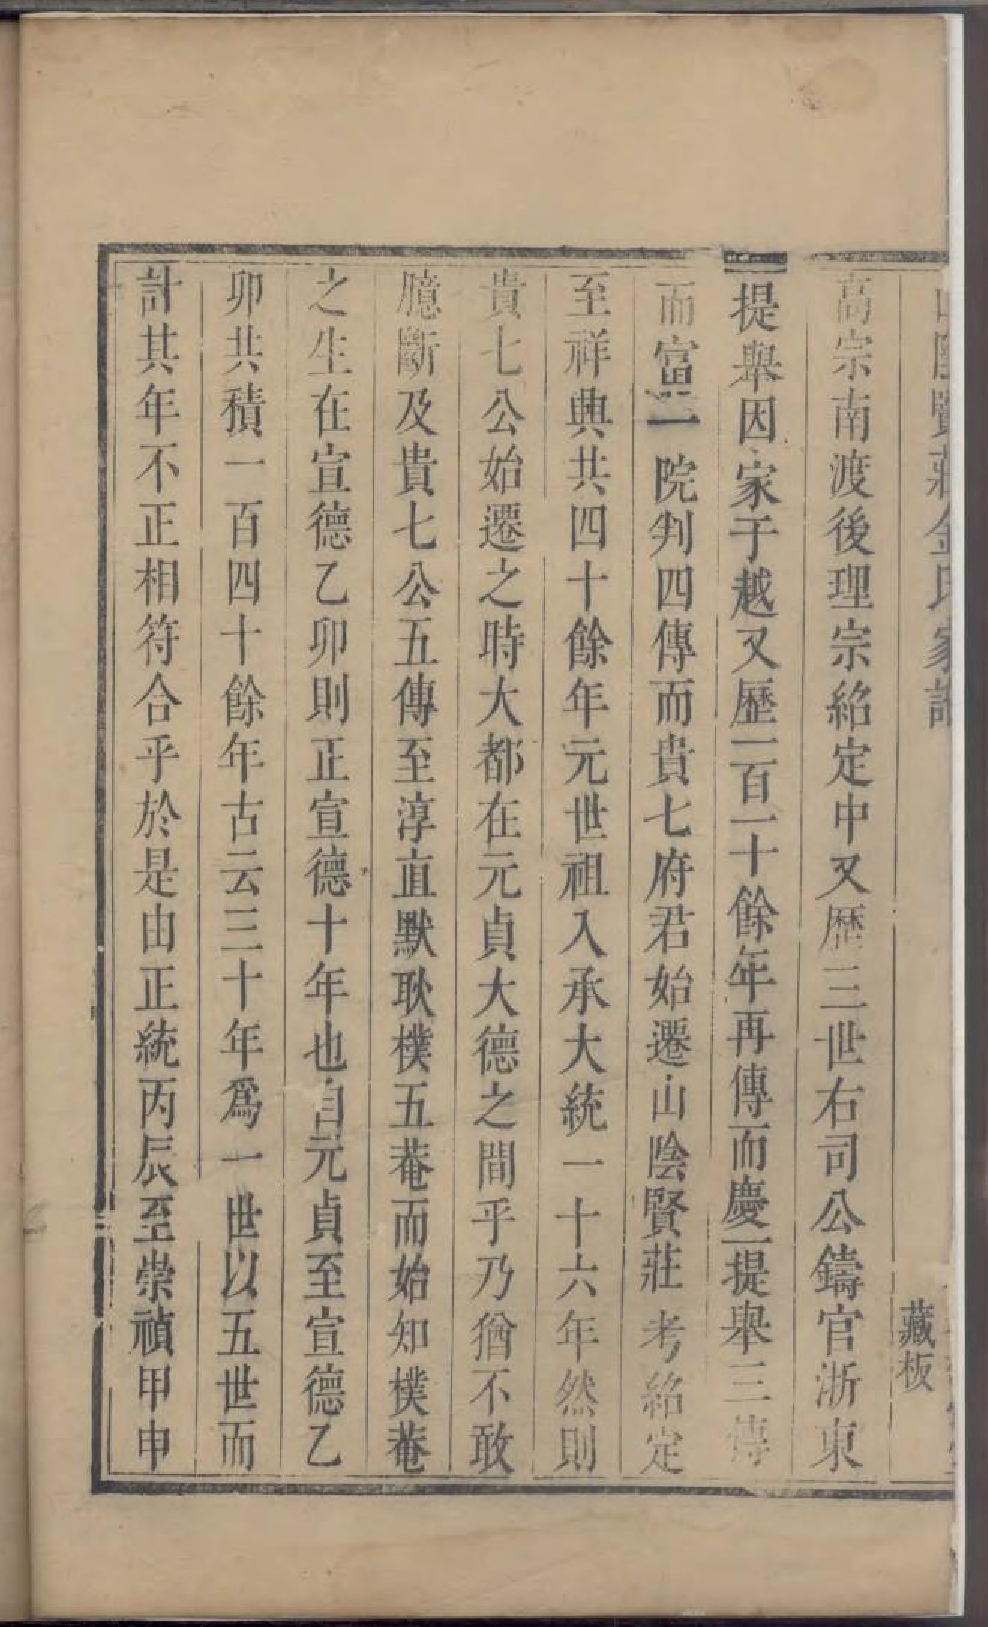 山陰賢莊金氏家譜
藏板
高宗南渡後理宗紹定中又歷三世右司公鑄官浙東
提舉因家于越又歷一百一十餘年再傳而慶一提舉三傳
而富一院判四傳而貴七府君始遷山陰賢莊考紹定
至祥興共四十餘年元世祖入承大統一十六年然則
貴七公始遷之時大都在元貞大德之間乎乃猶不敢
臆斷及貴七公五傳至淳直默耿樸五菴而始知樸菴
之生在宣德乙卯則正宣德十年也自元貞至宣德乙
卯共積一百四十餘年古云三十年爲一世以五世而
計其年不正相符合乎於是由正統丙辰至崇禎甲申